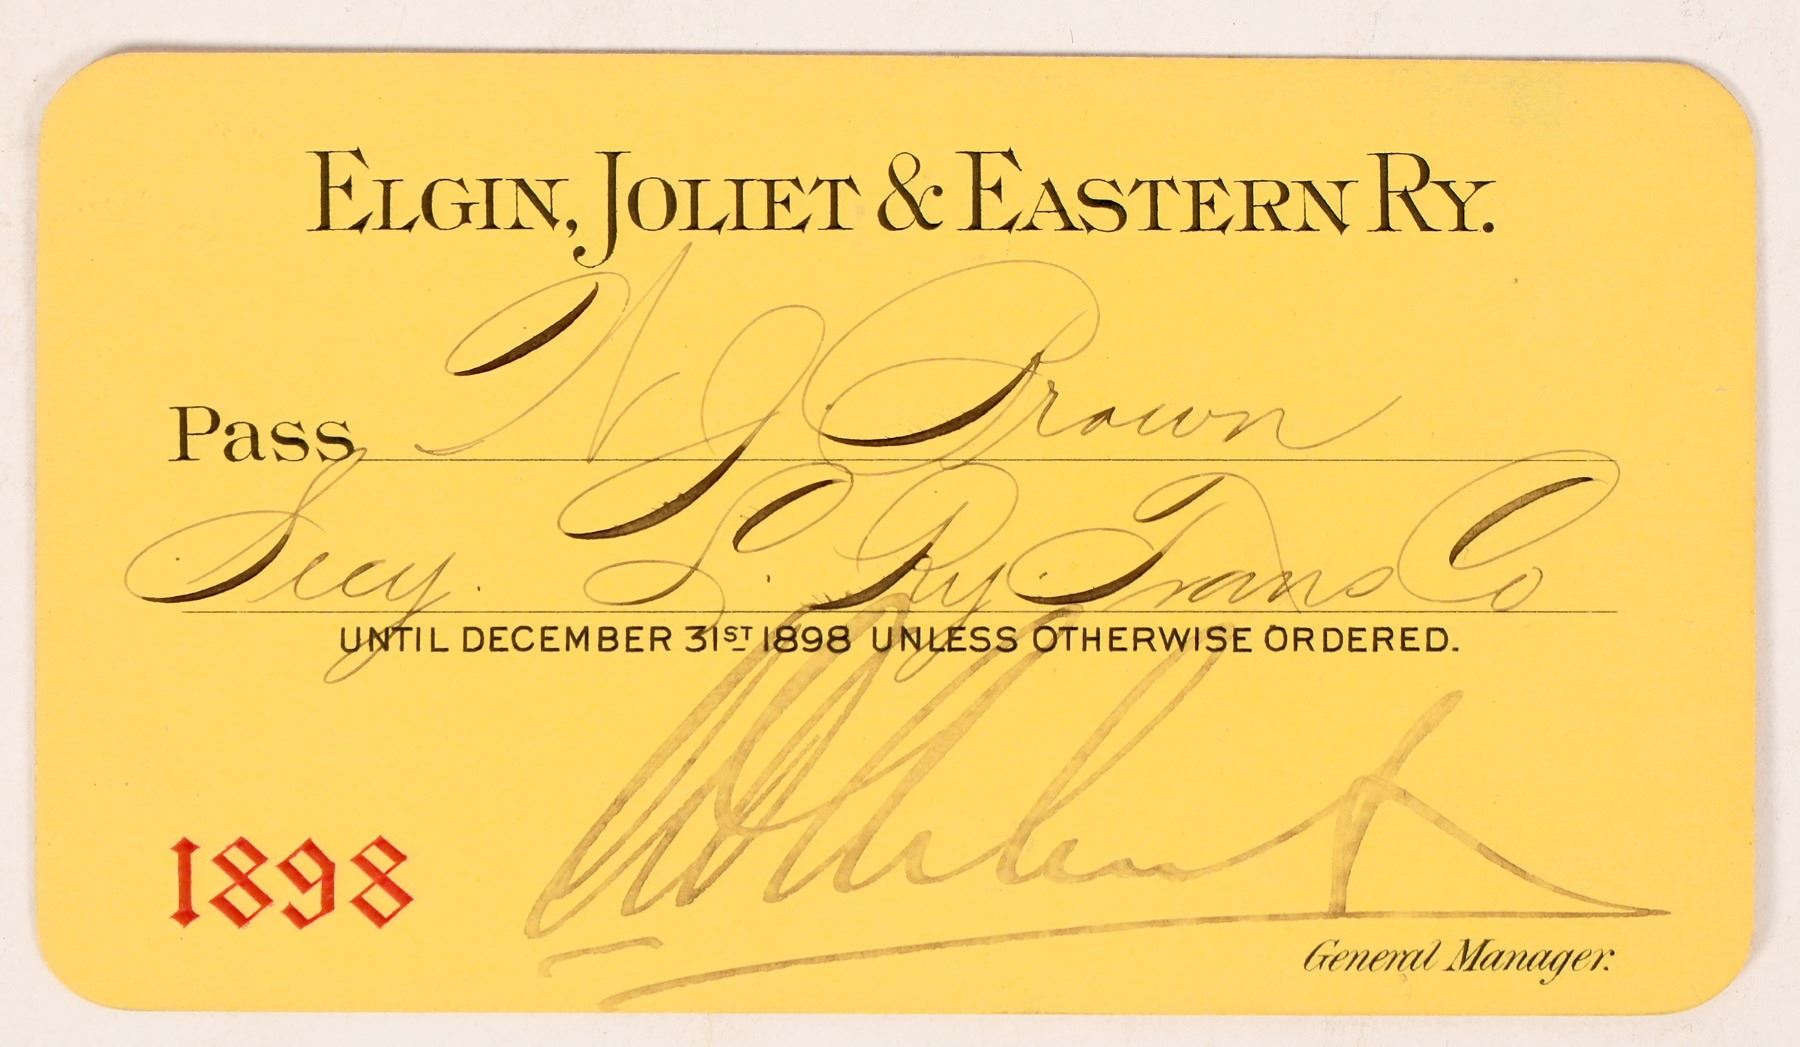 ELGIN, JOLIET & EASTERN RY.
Pass N J Brown
Secy. S. Ry Trans Co
UNTIL DECEMBER 31ST 1898 UNLESS OTHERWISE ORDERED.
1898
General Manager.